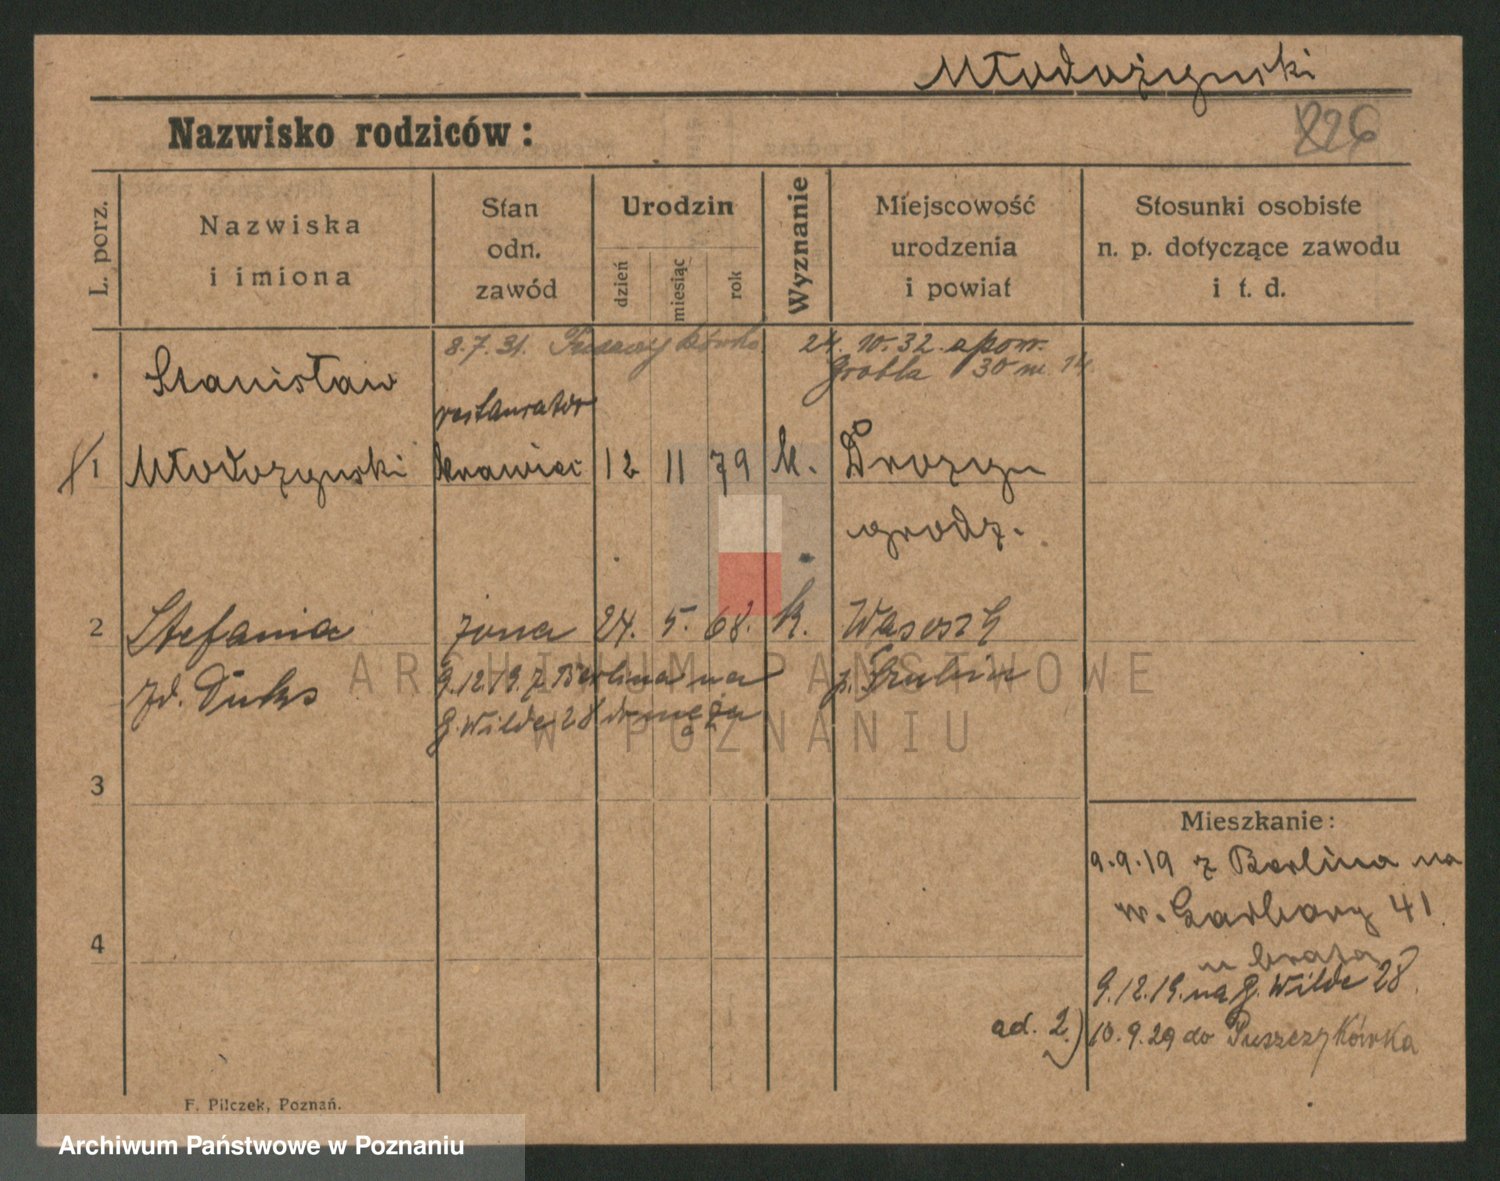 Młodożyński
826
Nazwisko rodziców:
L. porz.
Nazwiska
i imiona
Stan
odn.
zawód
Urodzin
dzień
miesiąc
rok
Wyznanie
Miejscowość
urodzenia
i powiat
Stosunki osobiste
n. p. dotyczące zawodu
i t. d.
8.7.31.
24. 10. 32. a pow.
Grobla 30 m. 14
Stanisław
restaurator
1 Młodożyński krawiec 12 11 79 k. Drożyn
grodz.
2 Stefania żona 24. 5. 68. k. Wasosz
zd. Duks 9.12.19. z Berlina na
G. Wilde 28 do męża
3
4
Mieszkanie:
9.9.19 z Berlina na
w. Garbary 41
u brata
9.12.19. na G. Wilde 28.
ad. 2.) 10.9.29 do Puszczykówka
F. Pilczek, Poznań.
ARCHIWUM PAŃSTWOWE
W POZNANIU
Archiwum Państwowe w Poznaniu